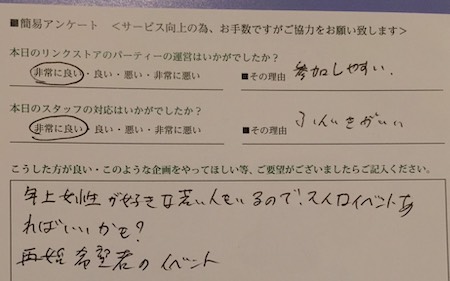 ■簡易アンケート ＜サービス向上の為、お手数ですがご協力をお願い致します＞
本日のリンクストアのパーティーの運営はいかがでしたか？
非常に良い・良い・悪い・非常に悪い ■その理由 参加しやすい.
本日のスタッフの対応はいかがでしたか？
非常に良い・良い・悪い・非常に悪い ■その理由 ふんいきがいい
こうした方が良い・このような企画をやってほしい等、ご要望がございましたらご記入ください。
年上女性が好きな若い人もいるので、スイロイベントあ
ればいいかも？
再婚希望者のイベント